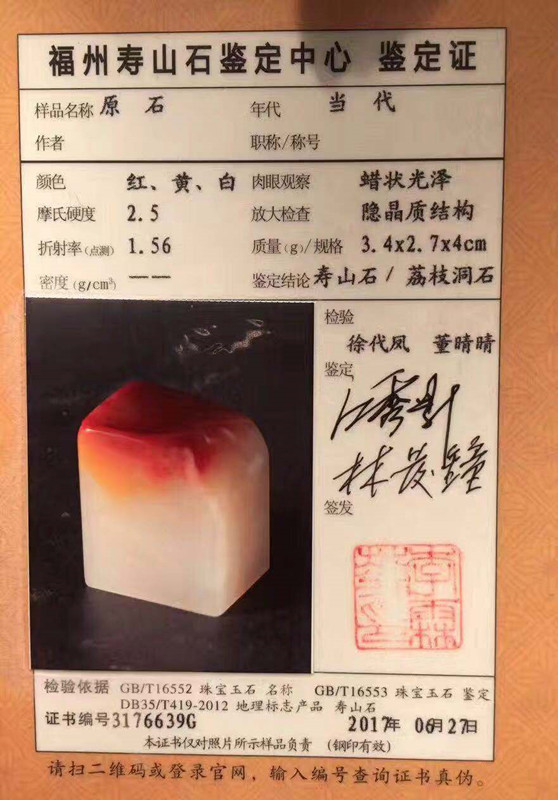 福州寿山石鉴定中心 鉴定证
样品名称 原 石 年代 当 代
作者 职称/称号
颜色 红、黄、白 肉眼观察 蜡状光泽
摩氏硬度 2.5 放大检查 隐晶质结构
折射率(点测) 1.56 质量(g)/规格 3.4x2.7x4cm
密度(g/cm³) —— 鉴定结论 寿山石/荔枝洞石
检验
徐代凤 董晴晴
鉴定
签发
检验依据 GB/T16552 珠宝玉石 名称 GB/T16553 珠宝玉石 鉴定
DB35/T419-2012 地理标志产品 寿山石
证书编号3176639G 2017年 06月27日
本证书仅对照片所示样品负责 (钢印有效)
请扫二维码或登录官网，输入编号查询证书真伪。